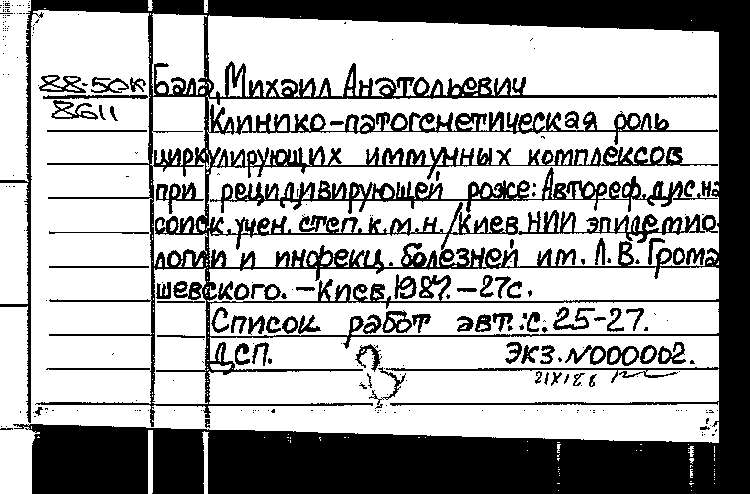 88-50к Бала, Михаил Анатольевич
8611
Клинико-патогенетическая роль
циркулирующих иммунных комплексов
при рецидивирующей роже: Автореф. дис. на
соиск. учен. степ. к.м.н. / Киев. НИИ эпидемио-
логии и инфекц. болезней им. Л.В. Грома
шевского. – Киев, 1987. – 27с.
Список работ авт.: с. 25-27.
ДСП. Экз. N000002.